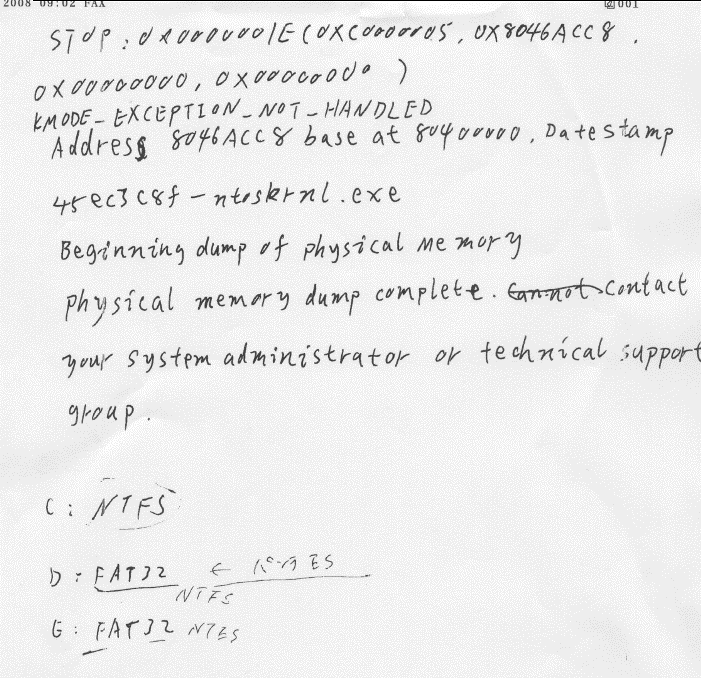 2008 09:02 FAX 001
STOP : 0x0000001E (0xC0000005, 0x8046ACC8,
0x00000000, 0x00000000)
KMODE_EXCEPTION_NOT_HANDLED
Address 8046ACC8 base at 80400000, Datestamp
45ec3c8f - ntoskrnl.exe
Beginning dump of physical memory
physical memory dump complete. cannot contact
your system administrator or technical support
group.
C : NTFS
D : FAT32 ← ES
NTFS
G : FAT32 NTFS